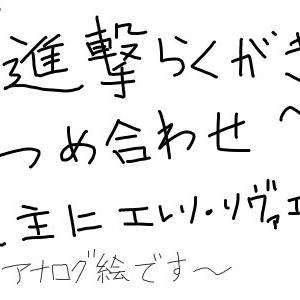 進撃らくがき
つめ合わせ
主にエレリ・リヴァエ
アナログ絵です〜